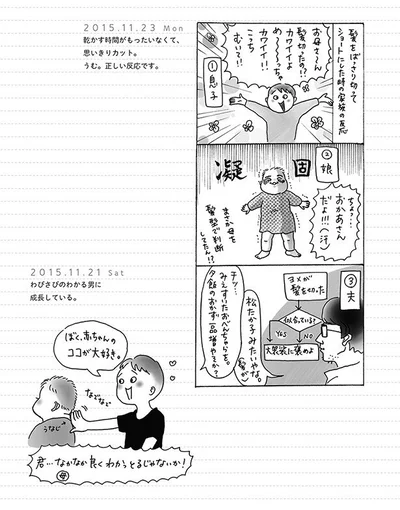 2015.11.23 Mon
乾かす時間がもったいなくて、
思いきりカット。
うむ。正しい反応です。
髪をばっさり切って
ショートにした時の家族の反応
お母さ〜ん
髪切ったの!?
カワイイよ
め〜〜〜っちゃ
カワイイ!!
こっち
むいて!!
①息子
②娘
凝固
ちょっ…
おかあさん
だよ!!!(汗)
まさか母を
髪型で判断
してたん!?
③夫
ヨメが
髪を切った
似合っている?
YES
NO
大袈裟に褒めよ
松たか子みたいやな。
(髪が)
チッ…
みえすいたおべんちゃらを。
夕飯のおかず一品増やすか?
2015.11.21 Sat
わびさびのわかる男に
成長している。
ぼく、赤ちゃんの
ココが大好き。
なでなで
うなじ
君…なかなか良くわかっとるじゃないか!
母